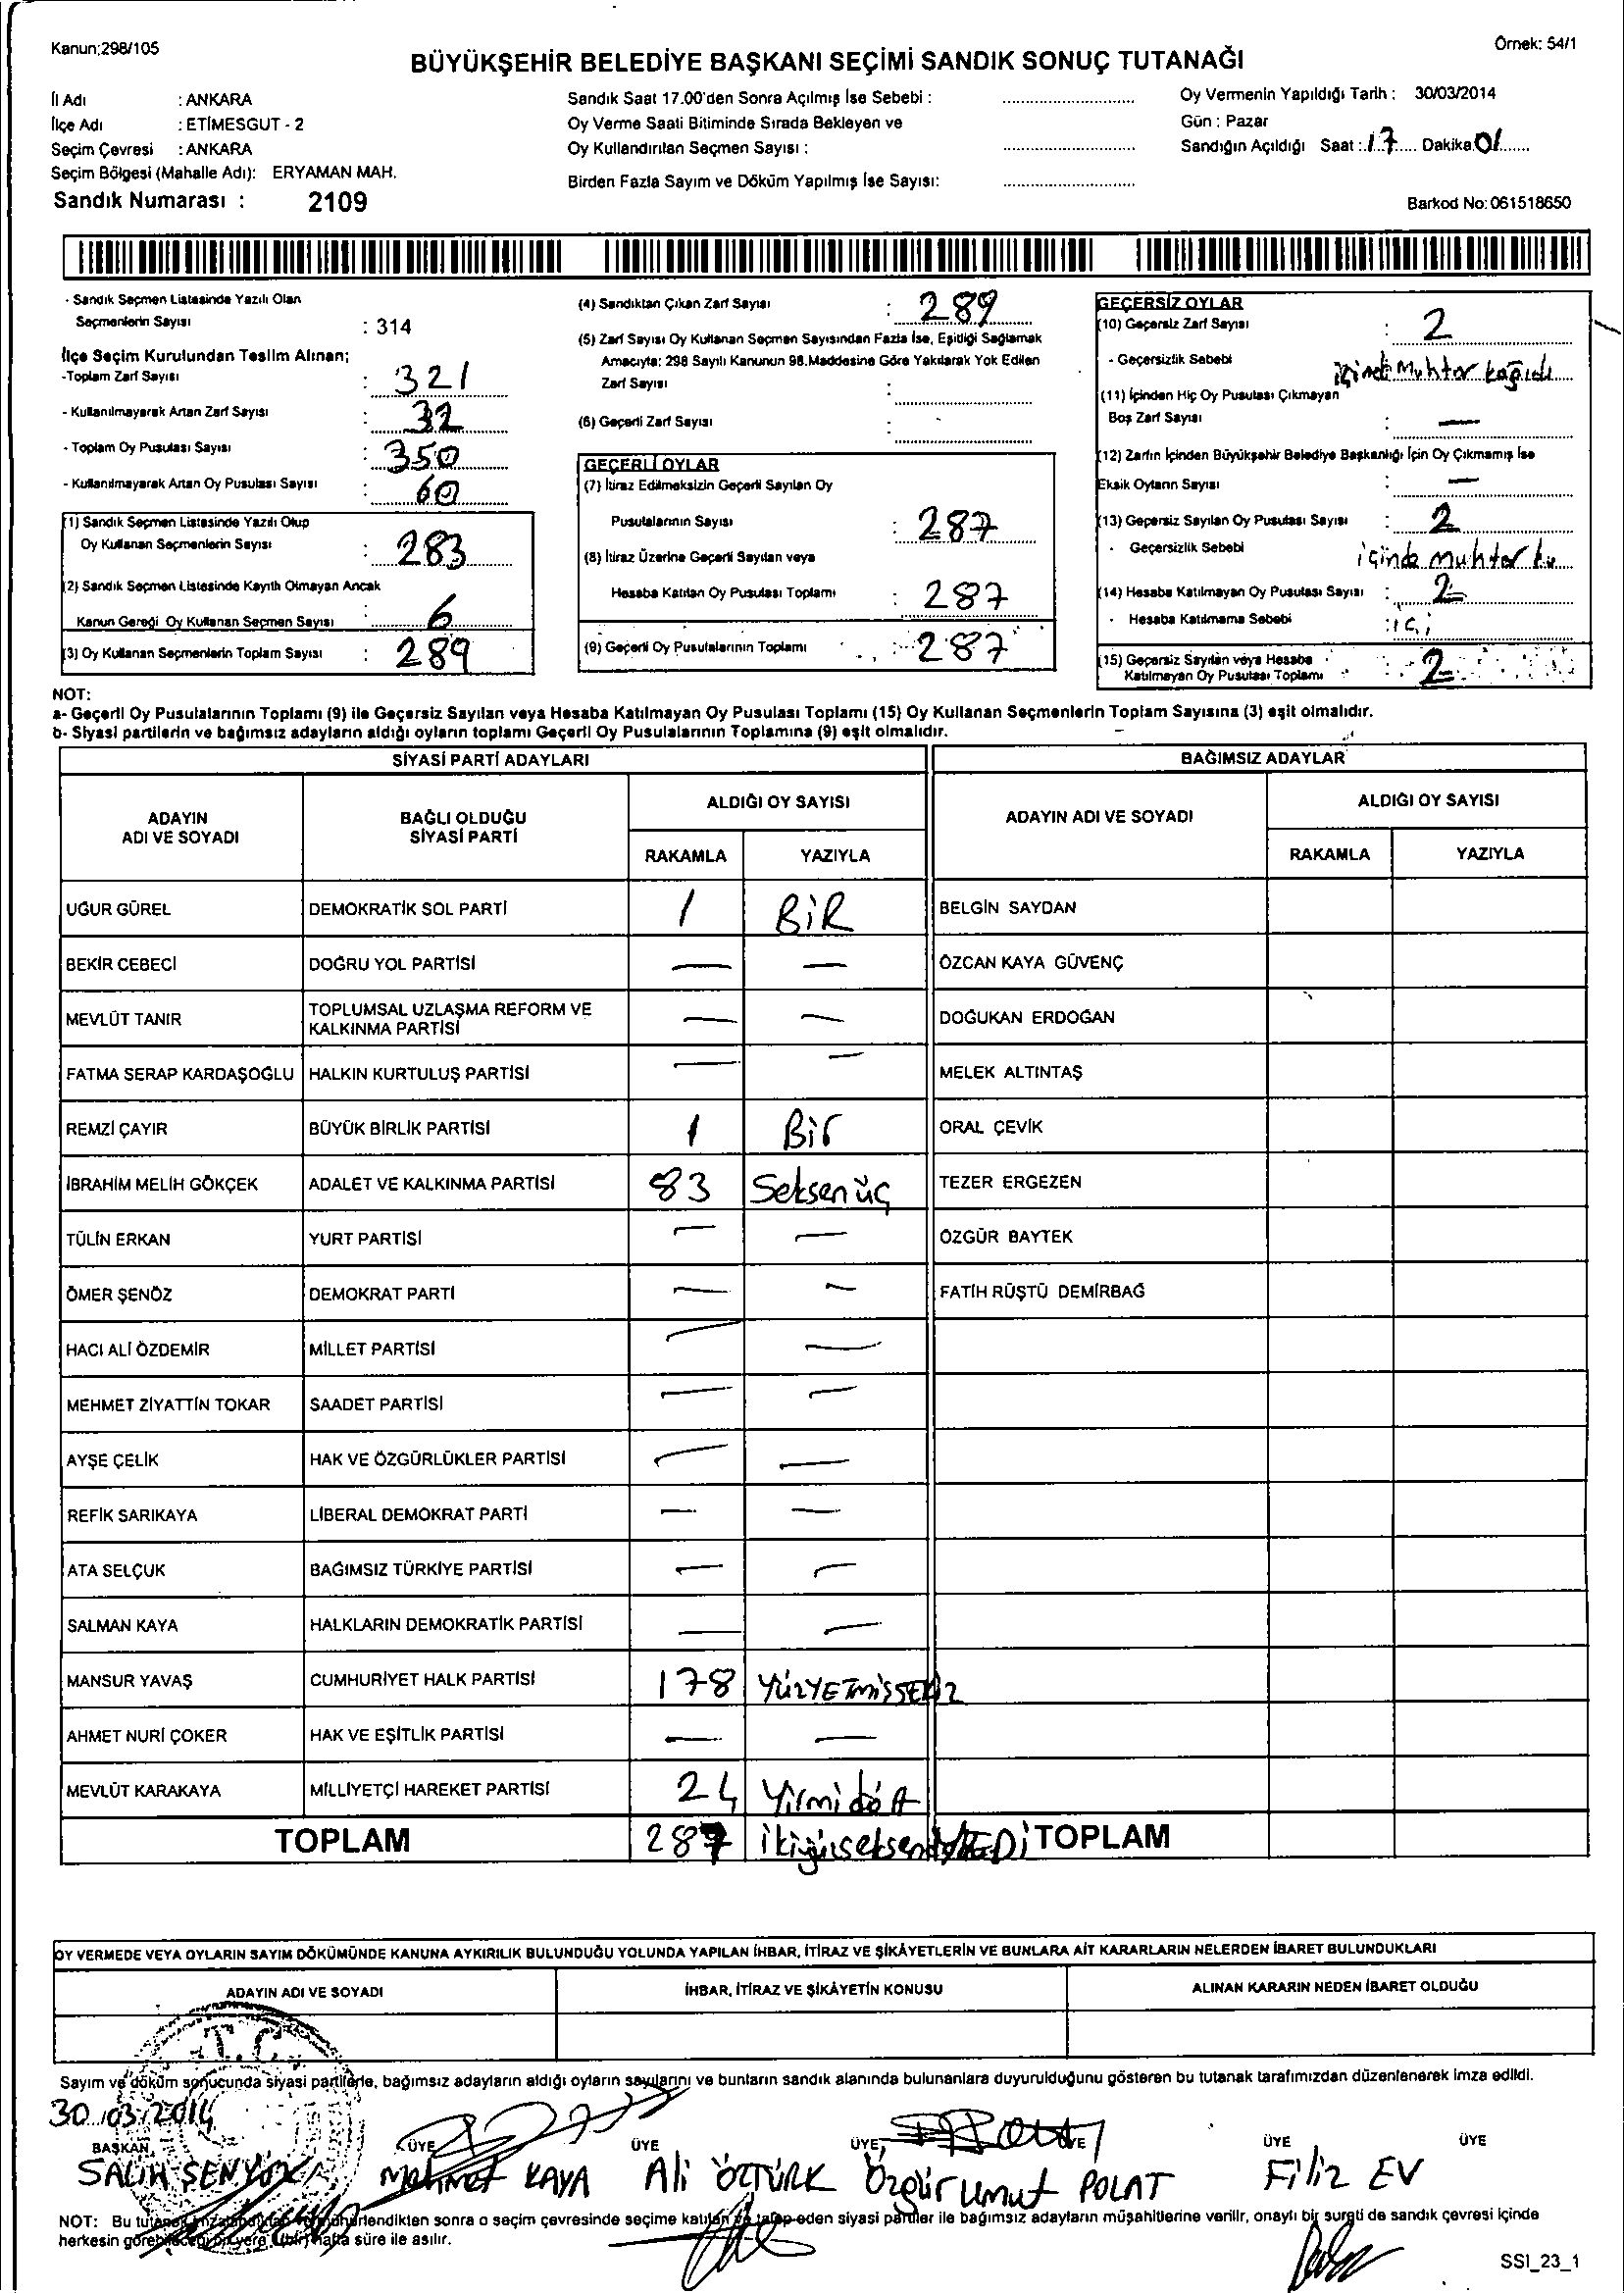 Kanun;298/105
Örnek: 54/1
BÜYÜKŞEHİR BELEDİYE BAŞKANI SEÇİMİ SANDIK SONUÇ TUTANAĞI
İl Adı : ANKARA
İlçe Adı : ETİMESGUT - 2
Seçim Çevresi : ANKARA
Seçim Bölgesi (Mahalle Adı): ERYAMAN MAH.
Sandık Numarası : 2109
Sandık Saat 17.00'den Sonra Açılmış İse Sebebi :
Oy Verme Saati Bitiminde Sırada Bekleyen ve
Oy Kullandırılan Seçmen Sayısı :
Birden Fazla Sayım ve Döküm Yapılmış İse Sayısı:
Oy Vermenin Yapıldığı Tarih : 30/03/2014
Gün : Pazar
Sandığın Açıldığı Saat : 17 Dakika 01
Barkod No: 061518650
- Sandık Seçmen Listesinde Yazılı Olan
Seçmenlerin Sayısı : 314
İlçe Seçim Kurulundan Teslim Alınan;
-Toplam Zarf Sayısı : 321
- Kullanılmayarak Artan Zarf Sayısı : 32
- Toplam Oy Pusulası Sayısı : 350
- Kullanılmayarak Artan Oy Pusulası Sayısı : 60
(1) Sandık Seçmen Listesinde Yazılı Olup
Oy Kullanan Seçmenlerin Sayısı : 283
(2) Sandık Seçmen Listesinde Kayıtlı Olmayan Ancak
Kanun Gereği Oy Kullanan Seçmen Sayısı : 6
(3) Oy Kullanan Seçmenlerin Toplam Sayısı : 289
(4) Sandıktan Çıkan Zarf Sayısı : 289
(5) Zarf Sayısı Oy Kullanan Seçmen Sayısından Fazla İse, Eşitliği Sağlamak
Amacıyla; 298 Sayılı Kanunun 98.Maddesine Göre Yakılarak Yok Edilen
Zarf Sayısı :
(6) Geçerli Zarf Sayısı :
GEÇERLİ OYLAR
(7) İtiraz Edilmeksizin Geçerli Sayılan Oy
Pusulalarının Sayısı : 287
(8) İtiraz Üzerine Geçerli Sayılan veya
Hesaba Katılan Oy Pusulası Toplamı : 287
(9) Geçerli Oy Pusulalarının Toplamı : 287
GEÇERSİZ OYLAR
(10) Geçersiz Zarf Sayısı : 2
- Geçersizlik Sebebi : içinde Muhtar kağıdı
(11) İçinden Hiç Oy Pusulası Çıkmayan
Boş Zarf Sayısı : —
(12) Zarfın İçinden Büyükşehir Belediye Başkanlığı İçin Oy Çıkmamış İse
Eksik Oyların Sayısı : —
(13) Geçersiz Sayılan Oy Pusulası Sayısı : 2
- Geçersizlik Sebebi içinde muhtar ka
(14) Hesaba Katılmayan Oy Pusulası Sayısı : 2
- Hesaba Katılmama Sebebi : içi
(15) Geçersiz Sayılan veya Hesaba
Katılmayan Oy Pusulası Toplamı : 2
NOT:
a- Geçerli Oy Pusulalarının Toplamı (9) ile Geçersiz Sayılan veya Hesaba Katılmayan Oy Pusulası Toplamı (15) Oy Kullanan Seçmenlerin Toplam Sayısına (3) eşit olmalıdır.
b- Siyasi partilerin ve bağımsız adayların aldığı oyların toplamı Geçerli Oy Pusulalarının Toplamına (9) eşit olmalıdır.
SİYASİ PARTİ ADAYLARI BAĞIMSIZ ADAYLAR
ADAYIN ADI VE SOYADI BAĞLI OLDUĞU SİYASİ PARTİ ALDIĞI OY SAYISI ADAYIN ADI VE SOYADI ALDIĞI OY SAYISI
RAKAMLA YAZIYLA RAKAMLA YAZIYLA
UĞUR GÜREL DEMOKRATİK SOL PARTİ 1 BİR BELGİN SAYDAN
BEKİR CEBECİ DOĞRU YOL PARTİSİ — — ÖZCAN KAYA GÜVENÇ
MEVLÜT TANIR TOPLUMSAL UZLAŞMA REFORM VE KALKINMA PARTİSİ — — DOĞUKAN ERDOĞAN
FATMA SERAP KARDAŞOĞLU HALKIN KURTULUŞ PARTİSİ — — MELEK ALTINTAŞ
REMZİ ÇAYIR BÜYÜK BİRLİK PARTİSİ 1 Bir ORAL ÇEVİK
İBRAHİM MELİH GÖKÇEK ADALET VE KALKINMA PARTİSİ 83 Seksenüç TEZER ERGEZEN
TÜLİN ERKAN YURT PARTİSİ — — ÖZGÜR BAYTEK
ÖMER ŞENÖZ DEMOKRAT PARTİ — — FATİH RÜŞTÜ DEMİRBAĞ
HACI ALİ ÖZDEMİR MİLLET PARTİSİ — —
MEHMET ZİYATTİN TOKAR SAADET PARTİSİ — —
AYŞE ÇELİK HAK VE ÖZGÜRLÜKLER PARTİSİ — —
REFİK SARIKAYA LİBERAL DEMOKRAT PARTİ — —
ATA SELÇUK BAĞIMSIZ TÜRKİYE PARTİSİ — —
SALMAN KAYA HALKLARIN DEMOKRATİK PARTİSİ — —
MANSUR YAVAŞ CUMHURİYET HALK PARTİSİ 178 YÜZYETMİŞSEKİZ
AHMET NURİ ÇOKER HAK VE EŞİTLİK PARTİSİ — —
MEVLÜT KARAKAYA MİLLİYETÇİ HAREKET PARTİSİ 24 Yirmidört
TOPLAM 287 ikiyüzseksenYEDİ TOPLAM
OY VERMEDE VEYA OYLARIN SAYIM DÖKÜMÜNDE KANUNA AYKIRILIK BULUNDUĞU YOLUNDA YAPILAN İHBAR, İTİRAZ VE ŞİKÂYETLERİN VE BUNLARA AİT KARARLARIN NELERDEN İBARET BULUNDUKLARI
ADAYIN ADI VE SOYADI İHBAR, İTİRAZ VE ŞİKÂYETİN KONUSU ALINAN KARARIN NEDEN İBARET OLDUĞU
T.C.
Sayım ve döküm sonucunda siyasi partilerle, bağımsız adayların aldığı oyların sayılarını ve bunların sandık alanında bulunanlara duyurulduğunu gösteren bu tutanak tarafımızdan düzenlenerek imza edildi.
30/03/2014
BAŞKAN ÜYE ÜYE ÜYE ÜYE ÜYE ÜYE
SALİH ŞENYÜZ Mehmet KAYA Ali ÖZTÜRK Özgür Umut POLAT Filiz EV
NOT: Bu tutanak imzalanıp mühürlendikten sonra o seçim çevresinde seçime katılan ve talep eden siyasi partiler ile bağımsız adayların müşahitlerine verilir, onaylı bir sureti de sandık çevresi içinde
herkesin görebileceği bir yere (bir) hafta süre ile asılır.
SSI_23_1